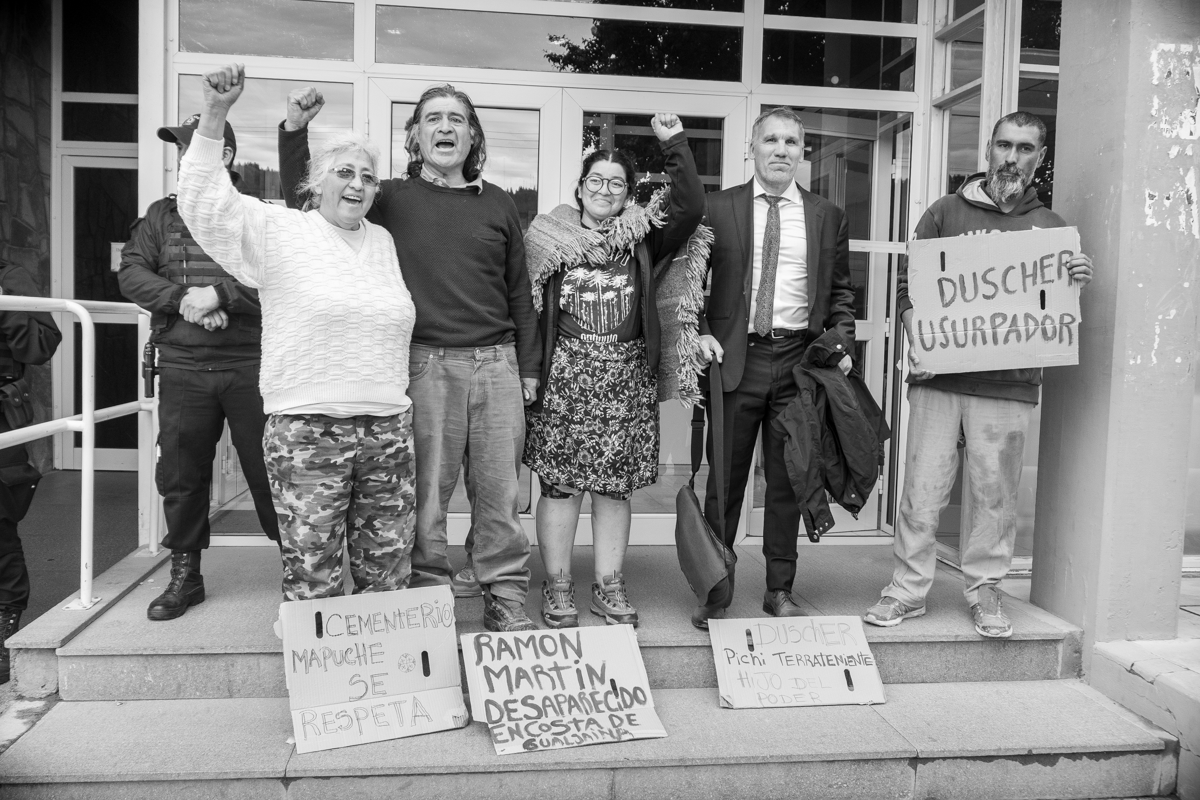 DUSCHER
USURPADOR
CEMENTERIO
MAPUCHE
SE
RESPETA
RAMON
MARTIN
DESAPARECIDO
EN COSTA DE
GUALJAINA
DUSCHER
PicHi TERRATEMIENTE
HIJO DEL
PODER